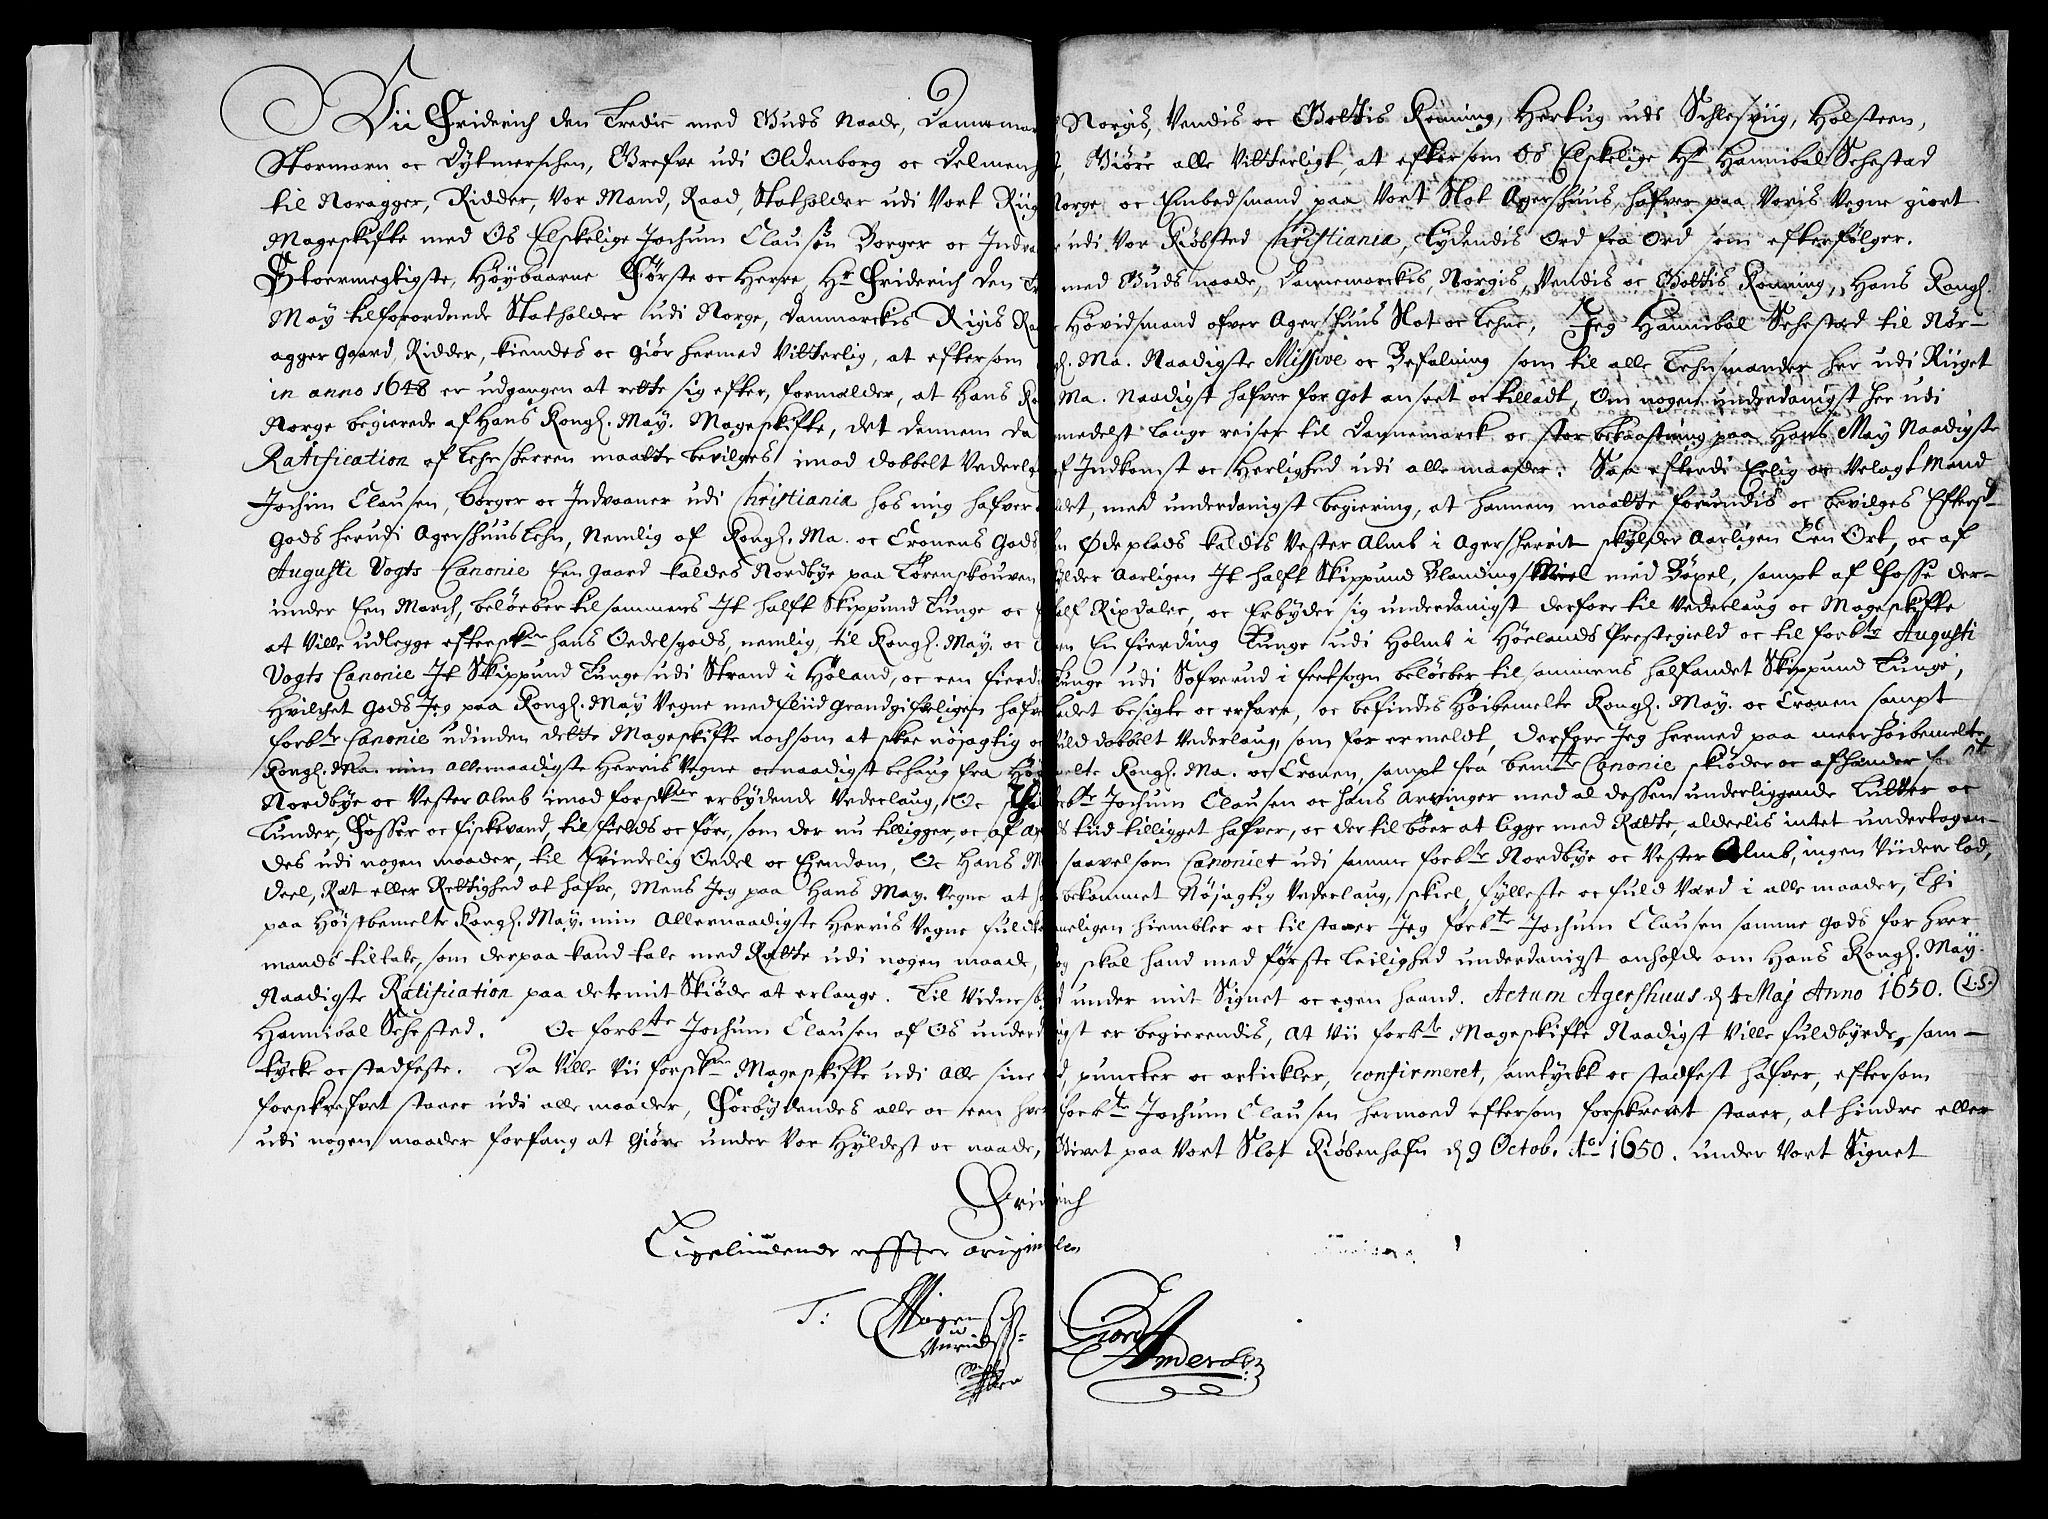 Vii Friderich den Tredie med Guds Naade, Dannemar Norgis, Vendis oc Gottis Konning, Hertug udi Schlesviig, Holsteen,
Stormarn oc Dytmerschen, Grefve udi Oldenborg oc Delmenh Giøre alle Vitterligt, at eftersom Os Elskelige Hr Hannibal Sehested
til Noragger, Ridder, Vor Mand, Raad, Statholder udi Vort Riig Norge oc Embedsmand paa Vort Slot Agershuus, hafver paa Voris Vegne giort
Mageskifte med Os Elskelige Jochum Clausen Borger oc Indva udi Vor Kiøbsted Christiania, Lydendis Ord fra Ord som efterfølger.
Stoermegtigste, Høybaarne Første oc Herre, Hr Friderich den Tr med Guds naade, Dannemarckis, Norgis, Vendis oc Gottis Konning, Hans Kongl.
May tilforordnede Statholder udi Norge, Danmarckis Rigis Ra Høvidsmand ofver Agershuus Slot oc Lehne, Jeg Hannibal Sehested til Nør-
agger gaard, Ridder, kiendes oc giør hermed Vitterlig, at eftersom Ma. Naadigste Missive oc Befalning som til alle Lehnsmænder her udi Riiget
in anno 1648 er udgangen at rette sig efter, formælder, at Hans Ko Ma. Naadigst hafver for got anseet oc tilladt, Om nogen underdanigst her udi
Norge begierede af Hans Kongl. May. Mageskifte, det dennem da medelst lange reiser til Dannemarck oc stor bekaastning paa Hans May Naadigste
Ratification af Lehnsherren maatte bevilges imod dobbelt Vederl af Indkomst oc Herlighed udi alle maader: Saa efterdi Erlig oc Velagt Mand
Jochim Clausen, borger oc Indvaaner udi Christiania hos mig hafver det, med underdanigst begiering, at hannem maatte forundis oc bevilges Eftersk
gods herudi Agershuus Lehn, Nemlig af Kongl. Ma. oc Cronens gods Øde plads kaldes Vester Almb i Agersherrit skylder Aarligen Een Ort, oc af
Augusti Vogts Canonie Een gaard kaldes Nordbye paa Tørenskouven ylder Aarligen It halft Skippund Blanding med Bøxel, sampt af Fosse der-
under Een March, beløeber tilsammens It halft Skippund Tunge oc half Rixdaler, oc Erbyder sig underdanigst derfore til Vederlaug oc Mageskifte
at Ville udlegge efterskne hans Oedelsgods, nemlig, til Kongl. May. oc En fierding Tunge udi Holmb i Høelands Prestegield oc til forbte Augusti
Vogts Canonie It Skippund Tunge udi Strand i Høland, oc een fierdi Tunge udi Sofverud i feetsogn beløeber tilsammens halfandet Skippund Tunge,
Hvilchet gods Jeg paa Kongl. May Vegne med fliid grandgifveligen hafve ladet besigte oc erfare, oc befindes Høibemelte Kongl. May. oc Cronen sampt
forbte Canonie udinden dette Mageskifte nochsom at skee nøjagtig oc fuld dobbelt Vederlaug, som for er meldt, derfore Jeg hermed paa meer høibemelte
Kongl. Ma. min allernaadigste Herris Vegne oc naadigst behaug fra Høy melte Kongl. Ma. oc Cronen, sampt fra bemte Canonie skiøder oc afhænder forst
Nordbye oc Vester Almb imod forskne erbydende Vederlaug, Oc forbte Jochum Clausen oc hans Arvinger med al dessen underliggende Lutter oc
Lunder, Fosser oc fiskevand, til fields oc føre, som der nu tilligger, oc af Ar tiid tilligget hafver, oc der til bør at ligge med Rætte, alderlis intet undertagen-
des udi nogen maader, til Evindelig Oedel oc Eiendom, Oc Hans M saavelsom Canoniet udi samme forbte Nordbye oc Vester Almb, ingen Viidere lod,
deel, Ræt eller Rettighed at hafve, Mens Jeg paa Hans May. Vegne at bekommet Nøjagtig Vederlaug, skiel, fylleste oc fuld Værd i alle maader, Thi
paa Høistbemelte Kongl. May. min Allernaadigste Herris Vegne fuldk meligen hiembler oc tilstaaer Jeg forbte Jochum Clausen samme gods for hver
mands tiltale, som derpaa kand tale med Rætte udi nogen maade, og skal hand med første leilighed underdanigst anholde om Hans Kongl. May.
Naadigste Ratification paa dete mit Skiøde at erlange. Til Vidnesby under mit Signet oc egen haand. Actum Agershuus d 4 Maj Anno 1650. (L.S.)
Hannibal Sehested. Oc forbte Jochum Clausen af Os underd igst er begierendis, at Vii forbte Mageskifte Naadigst Ville fuldbyrde, sam-
tycke oc stadfeste. Da Ville Vii forskne Mageskifte udi alle sine puncter oc artickler, confirmeret, samtyckt oc stadfest hafver, eftersom
forskrefvet staaer udi alle maader, Forbydendes alle oc een hver forbte Jochum Clausen hermoed eftersom forskrevet staaer, at hindre eller
udi nogen maader forfang at giøre under Vor Hyldest oc naade, Givet paa Vort Slot Kiøbenhafn d 9 Octob. Ao 1650. under Vort Signet
Friderich
Ligeliudende effter originalen
T:
Anders